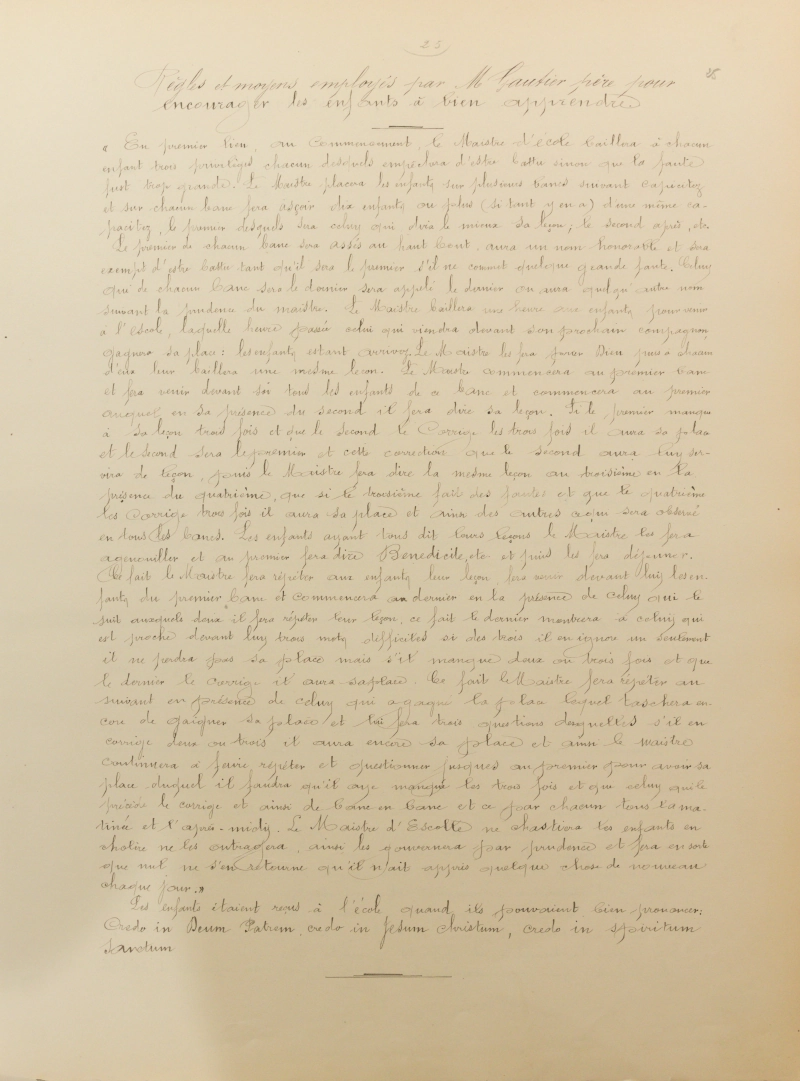 25
Règles et moyens employés par M Gautier père pour
encourager les enfants à bien apprendre
« En premier lieu, au Commencement, le Maistre d'école baillera à chacun
enfant trois privilèges chacun desquels empêchera d'estre battu sinon que la faute
fust trop grande. Le Maistre placera les enfants sur plusieurs bancs suivant capacitez
et sur chacun banc fera asçoir dix enfants ou plus (si tant y en a) d'une même ca-
pacitez, le premier desquels sera celuy qui dira le mieux sa leçon; le second après, etc.
Le premier de chacun banc sera assés au haut bout, aura un nom honorable et sera
exempt d'estre battu tant qu'il sera le premier s'il ne commet quelque grande faute. Celuy
qui de chacun banc sera le dernier sera appelé le dernier ou aura quelqu'autre nom
suivant la prudence du maistre. Le Maistre baillera une heure aux enfants pour venir
à l'Escole, laquelle heure passée celui qui viendra devant son prochain compagnon
gagnera sa place: les enfants estant arrivez. Le Maistre les fera prier Dieu puis à chacun
d'eux leur baillera une mesme leçon. Le Maistre commencera au premier ban
et fera venir devant soi tous les enfants de ce banc et commencera au premier
auquel en sa présence du second il fera dire sa leçon. Si le premier manque
à sa leçon trois fois et que le second le Corrige les trois fois il aura sa place
et le second sera le premier et cette correction que le second aura luy ser-
vira de leçon, puis le Maistre fera dire la mesme leçon au troisième en la
présence du quatrième, que si le troisième fait des fautes et que le quatrième
les Corrige trois fois il aura sa place et ainsi des autres ce qui sera observé
en tous les bancs. Les enfants ayant tous dit leurs leçons le Maistre les fera
agenouiller et au premier fera dire Benedicite, etc et puis les fera déjeuner.
Ce fait le Maistre fera répéter aux enfants leur leçon, fera venir devant luy les en-
fants du premier banc et commencera au dernier en la présence de celuy qui le
suit auxquels deux il fera répéter leur leçon, ce fait le dernier montrera à celuy qui
est proche devant luy trois mots difficiles si des trois il en ignore un seulement
il ne perdra pas sa place mais s'il manque deux ou trois fois et que
le dernier le corrige il aura sa place. Ce fait le Maistre fera répéter au
suivant en présence de celuy qui a gagné la place lequel taschera en-
core de gaigner sa place et luy fera trois questions desquelles s'il en
corrige deux ou trois il aura encore sa place et ainsi le maistre
continuera à faire répéter et questionner jusques au premier pour avoir sa
place duquel il faudra qu'il aye manqué les trois fois et que celuy qui le
précède le corrige et ainsi de banc en banc et ce par chacun tous la ma-
tinée et l'après-midy. Le Maistre d'Escolle ne chastiera les enfants en
cholère ne les outragera, ainsi les gouvernera par prudence et fera en sorte
que nul ne s'en retourne qu'il n'ait appris quelque chose de nouveau
chaque jour. »
Les enfants étaient reçus à l'école quand ils pouvaient bien prononcer:
Credo in Deum Patrem, credo in Jesum Christum, credo in Spiritum
Sanctum